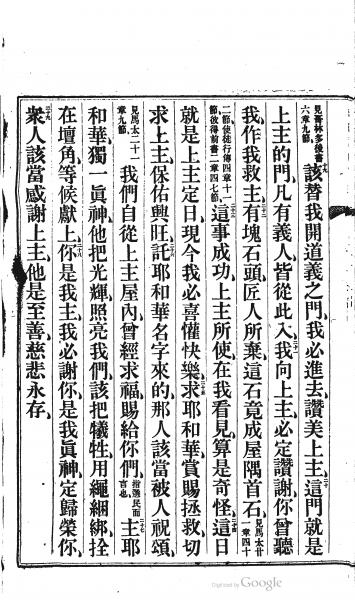 見哥林多後書六章九節。十九該替我開道義之門、我必進去、讚美上主、二十這門就是
上主的門、凡有義人皆從此入、二十一我向上主必定讚謝、你曾聽
我、作我救主、二十二有塊石頭、匠人所棄、這石竟成屋隅首石、見馬太廿一章四十
二節、使徒行傳四章十一節、彼得前書二章四七節。二十三這事成功、上主所使、在我看見、算是奇怪、二十四這日
就是上主定日、現今我必喜懽快樂、二十五求耶和華、賞賜拯救、切
求上主、保佑興旺、二十六託耶和華名字來的、那人該當被人祝頌、
見馬太二十一章九節。我們自從上主屋內、曾經求福、賜給你們、指選民而言也。二十七主耶
和華、獨一眞神、他把光輝、照亮我們、該把犧牲、用繩綑綁、拴
在壇角、等候獻上、二十八你是我主、我必謝你、是我眞神、定歸榮你、
二十九衆人該當感謝上主、他是至善、慈悲永存。
Digitized by Google